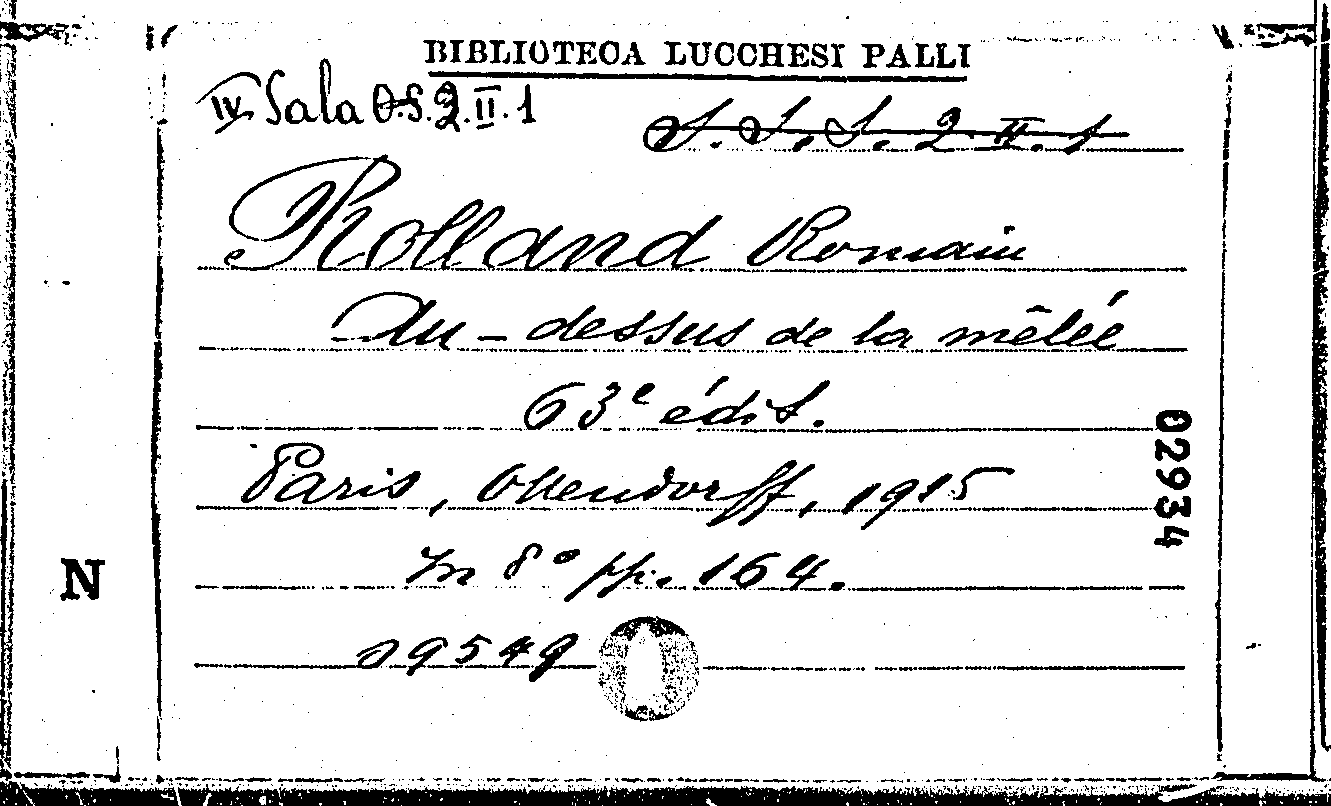 BIBLIOTECA LUCCHESI PALLI
IV Sala O.S.2.II.1
S. S. S. 2. II. 1
Rolland Romain
Au-dessus de la mêlée
63e édit.
Paris, Ollendorff, 1915
In 8° pp. 164.
19549
02934
N